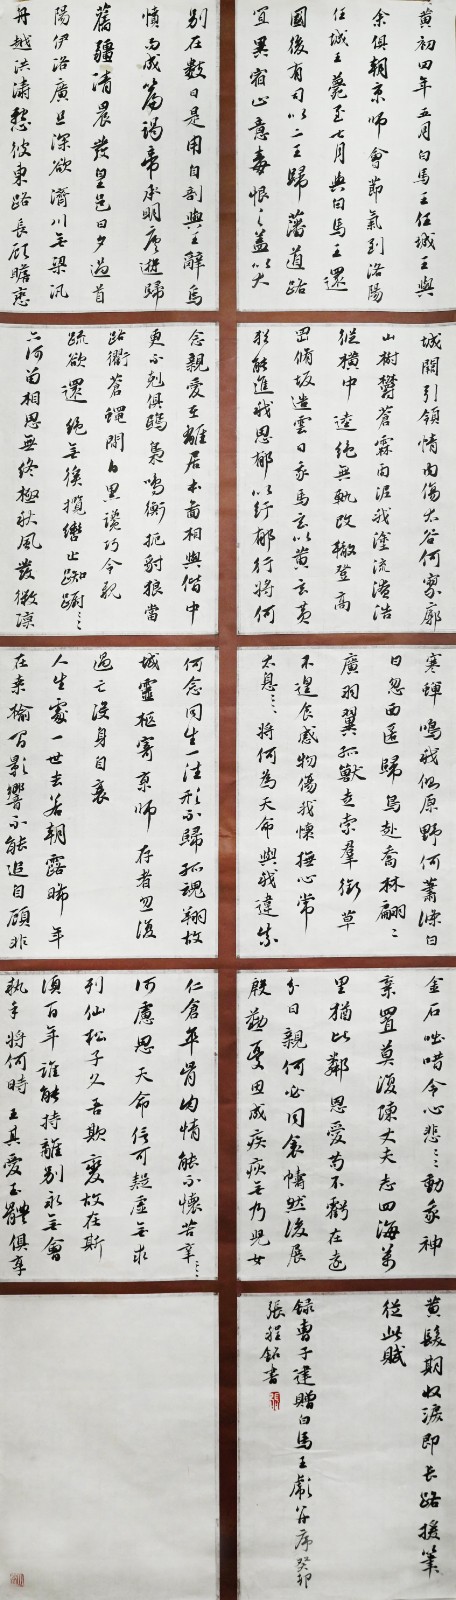 黄初四年五月白馬王任城王與
余俱朝京師會節氣到洛陽
任城王薨至七月與白馬王還
國後有司以二王歸藩道路
宜異宿止意毒恨之蓋以大
别在數日是用自剖與王辭焉
憤而成篇謁帝承明廬逝歸
舊疆清晨發皇邑日夕過首
陽伊洛廣且深欲濟川無梁汎
舟越洪濤怨彼東路長顧瞻戀
城闕引領情内傷太谷何寥廓
山樹鬱蒼霖雨泥我塗流潦浩
縱横中逵絶無軌改轍登高
岡脩坂造雲日我馬玄以黄玄黄
猶能進我思郁以紆郁紆將何
念親愛在離居本圖相與偕中
更不剋俱鴟梟鳴衡扼豺狼當
路衢蒼蠅間白黑讒巧令親
疏欲還絶無蹊攬轡止踟蹰ミ
亦何留相思無終極秋風發微凉
寒蟬鳴我側原野何蕭條白
日忽西匿歸鳥赴喬林翩ミ
厲羽翼孤獸走索群銜草
不遑食感物傷我懷撫心常
太息ミ將何為天命與我違奈
何念同生一往形不歸孤魂翔故
城靈柩寄京師存者忽復
過亡没身自衰
人生處一世去若朝露晞年
在桑榆間影響不能追自顧非
金石咄唶令心悲ミ動我神
棄置莫復陳丈夫志四海萬
里猶比鄰恩愛苟不虧在遠
分日親何必同衾幬然後展
殷勤憂思成疾疢無乃兒女
仁倉卒骨肉情能不懷苦辛ミミ
何慮思天命信可疑虚無求
列仙松子久吾欺變故在斯
須百年誰能持離别永無會
執手將何時王其愛玉體俱享
黄髮期收淚即長路援筆
從此辭
録曹子建贈白馬王彪并序癸卯
張程銘書